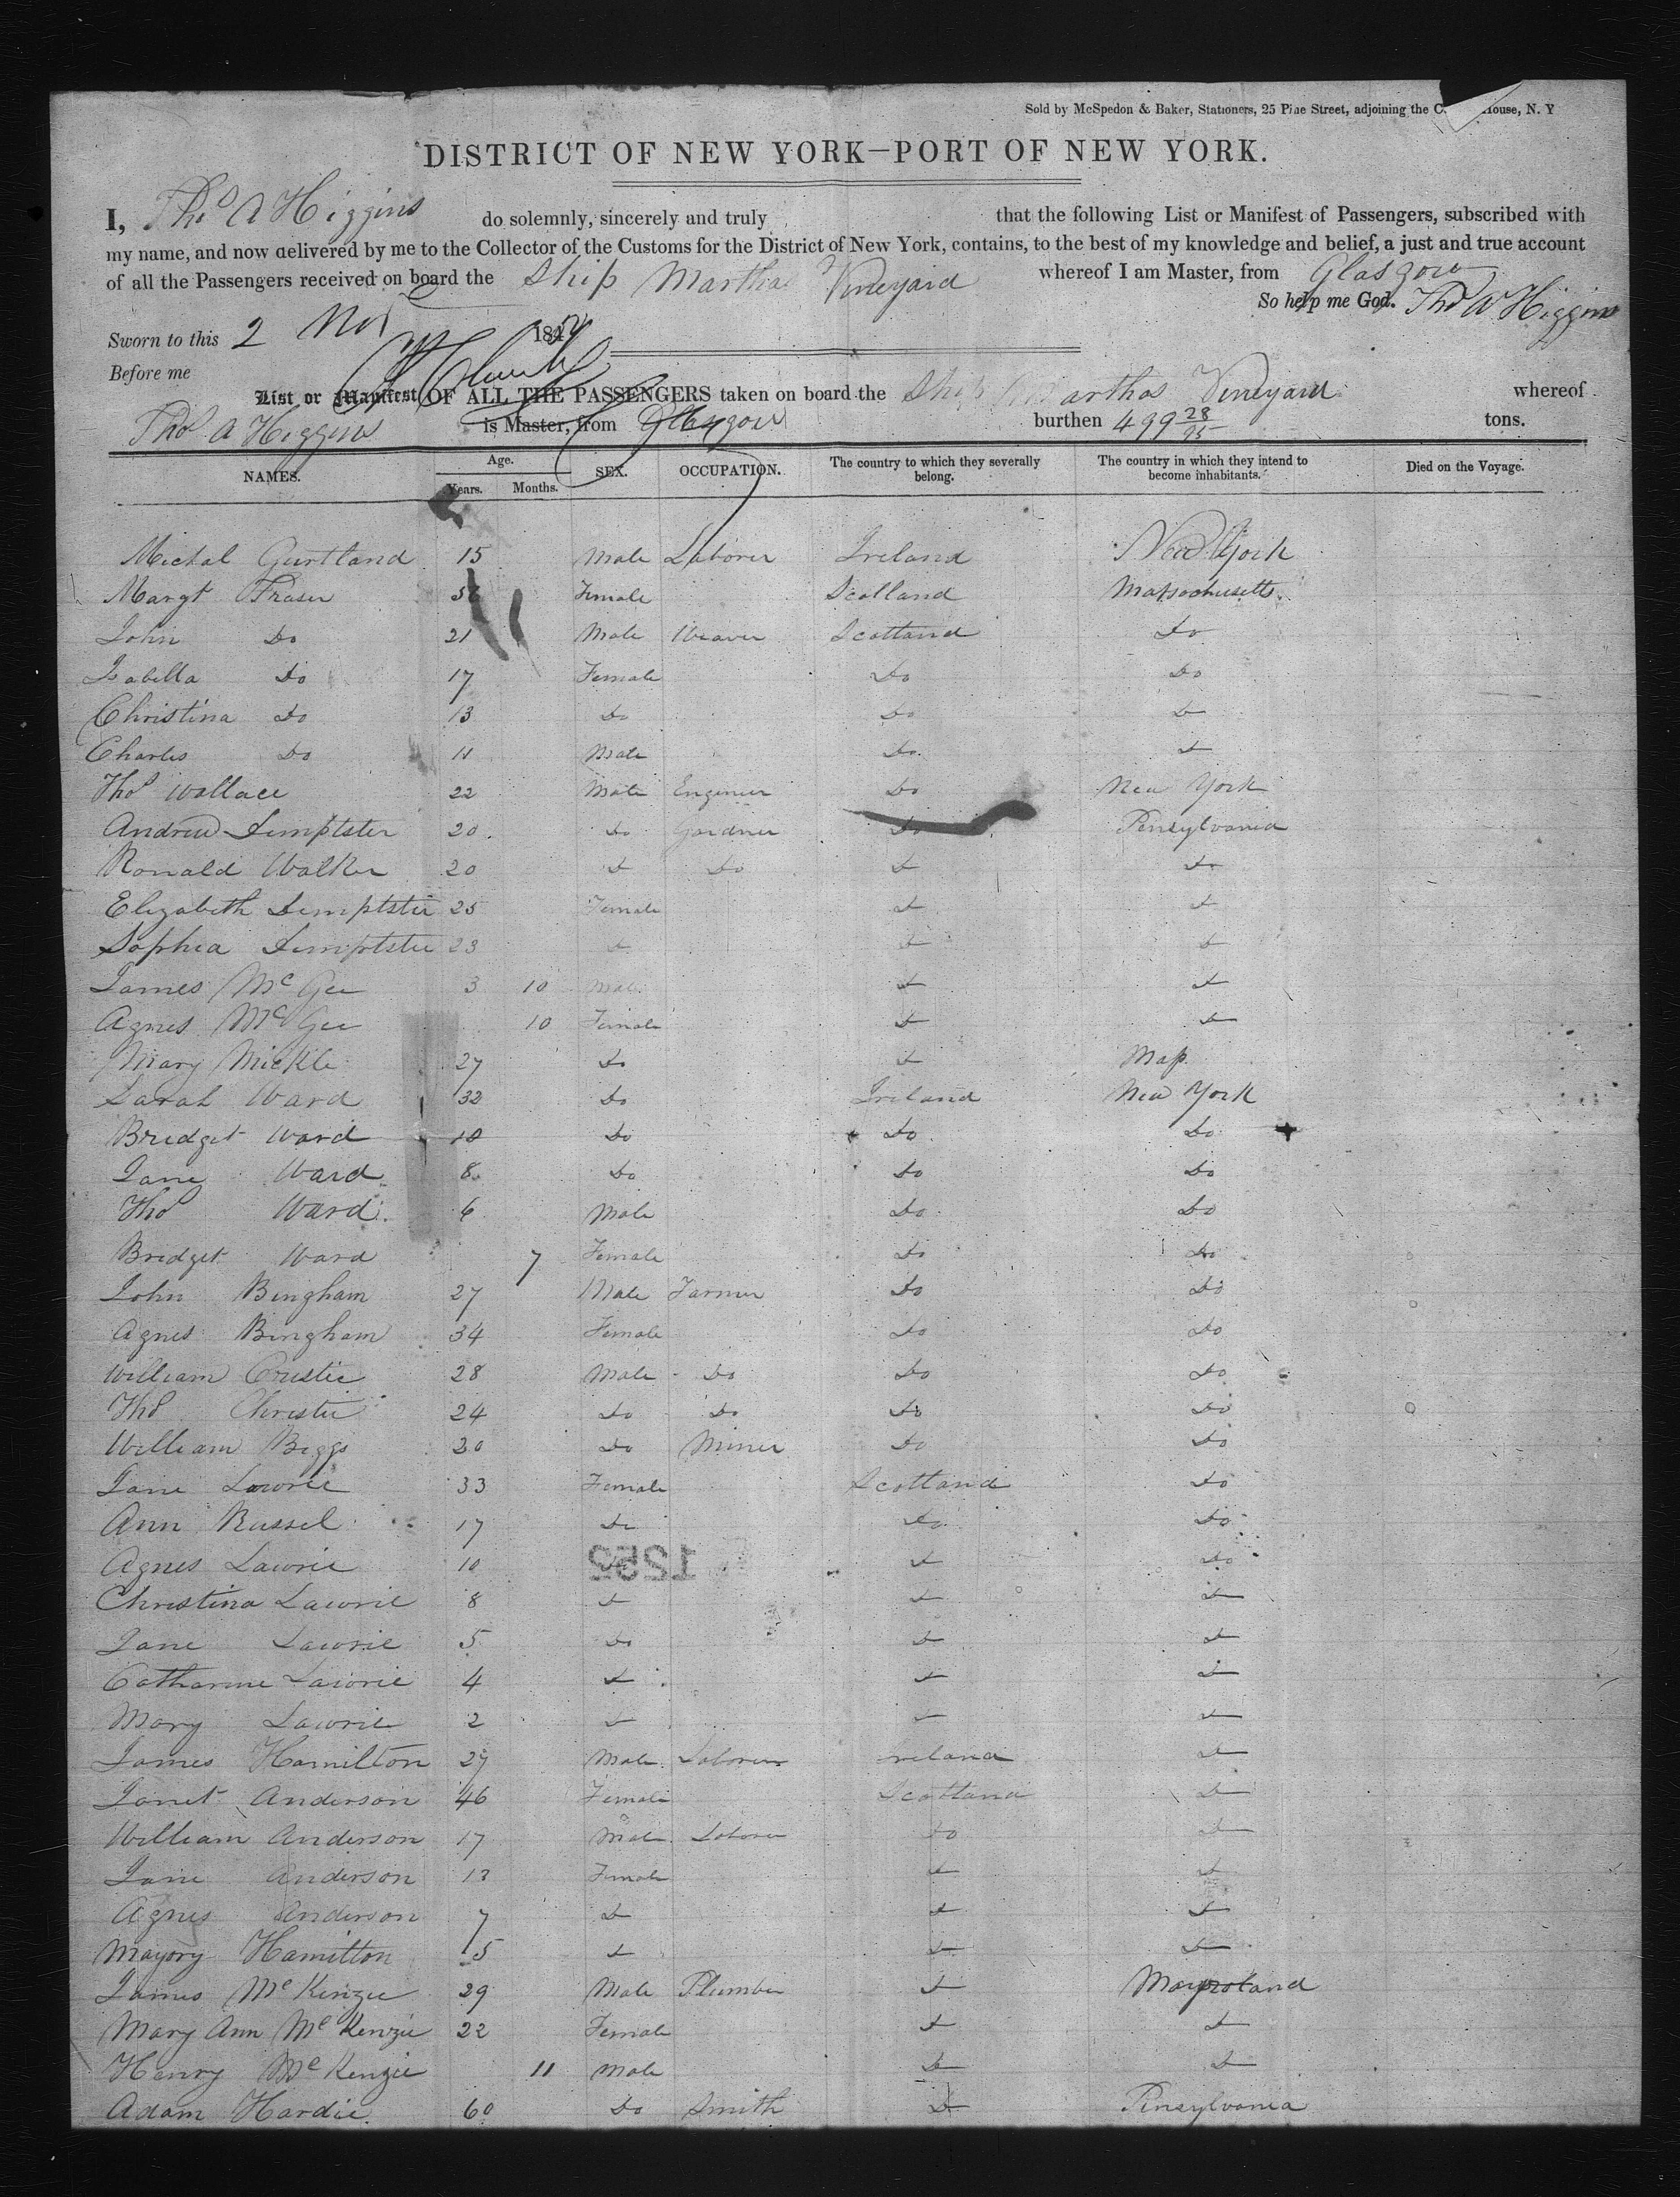 Sold by McSpedon & Baker, Stationers, 25 Pine Street, adjoining the C House, N. Y
DISTRICT OF NEW YORK—PORT OF NEW YORK.
I, Thos A Higgins do solemnly, sincerely and truly that the following List or Manifest of Passengers, subscribed with
my name, and now delivered by me to the Collector of the Customs for the District of New York, contains, to the best of my knowledge and belief, a just and true account
of all the Passengers received on board the Ship Marthas Vineyard whereof I am Master, from Glasgow
So help me God. Thos A Higgins
Sworn to this 2 Nov 184
Before me
List or Manifest OF ALL THE PASSENGERS taken on board the Ship Marthas Vineyard whereof
Thos A Higgins is Master, from Glasgow burthen 499 28/95 tons.
NAMES. Age. Years. Months. SEX. OCCUPATION. The country to which they severally belong. The country in which they intend to become inhabitants. Died on the Voyage.
Michal Gurtland 15 Male Laborer Ireland New York
Margt Fraser Female Scotland Massachusetts
John Do 21 Male Weaver Scotland Do
Isabella Do 17 Female Do Do
Christina Do 13 Do Do Do
Charles Do 11 Male Do Do
Thos Wallace 22 Male Engineer Do New York
Andrew Demptster 20 Do Gardner Do Pensylvania
Ronald Walker 20 Do Do Do Do
Elizabeth Demptster 25 Female Do Do
Sophia Demptster 23 Do Do Do
James McGee 3 10 Male Do Do
Agnes McGee 10 Female Do Do
Mary Mickle 27 Do Do Mass
Sarah Ward 32 Do Ireland New York
Bridget Ward 10 Do Do Do
Jane Ward 8 Do Do Do
Thos Ward 6 Male Do Do
Bridget Ward 7 Female Do Do
John Bingham 27 Male Farmer Do Do
Agnes Bingham 34 Female Do Do
William Cristie 28 Male Do Do Do
Thos Christie 24 Do Do Do Do
William Biggs 20 Do Miner Do Do
Jane Lawrie 33 Female Scotland Do
Ann Russel 17 Do Do Do
Agnes Lawrie 10 Do Do
Christina Lawrie 8 Do Do Do
Jane Lawrie 5 Do Do Do
Catharine Lawrie 4 Do Do Do
Mary Lawrie 2 Do Do Do
James Hamilton 27 Male Laborer Ireland Do
Janet Anderson 46 Female Scotland Do
William Anderson 17 Male Laborer Do Do
Jane Anderson 13 Female Do Do
Agnes Anderson 7 Do Do Do
Mayory Hamilton 5 Do Do Do
James McKenzie 29 Male Plumber Do Maryland
Mary Ann McKenzie 22 Female Do Do
Henry McKenzie 11 Male Do Do
Adam Hardie 60 Do Smith Do Pensylvania